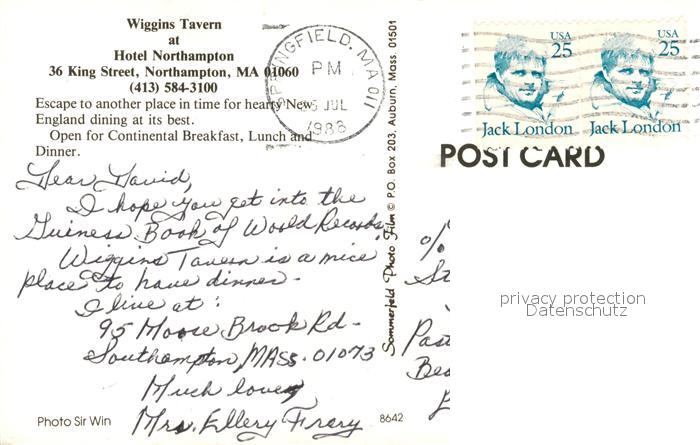 Wiggins Tavern
at
Hotel Northampton
36 King Street, Northampton, MA 01060
(413) 584-3100
Escape to another place in time for hearty New
England dining at its best.
Open for Continental Breakfast, Lunch and
Dinner.
SPRINGFIELD, MA 011
PM
5 JUL
1988
USA
25
Jack London
USA
25
Jack London
POST CARD
Dear David,
I hope you get into the
Guiness Book of World Records.
Wiggins Tavern is a nice
place to have dinner.
I live at:
95 Moose Brook Rd.
Southampton, MASS. 01073
Much love,
Mrs. Ellery Frary
Photo Sir Win
8642
Sommerfeld Photo Film © P.O. Box 203, Auburn, Mass. 01501
%
St
Past
Bea
privacy protection
Datenschutz